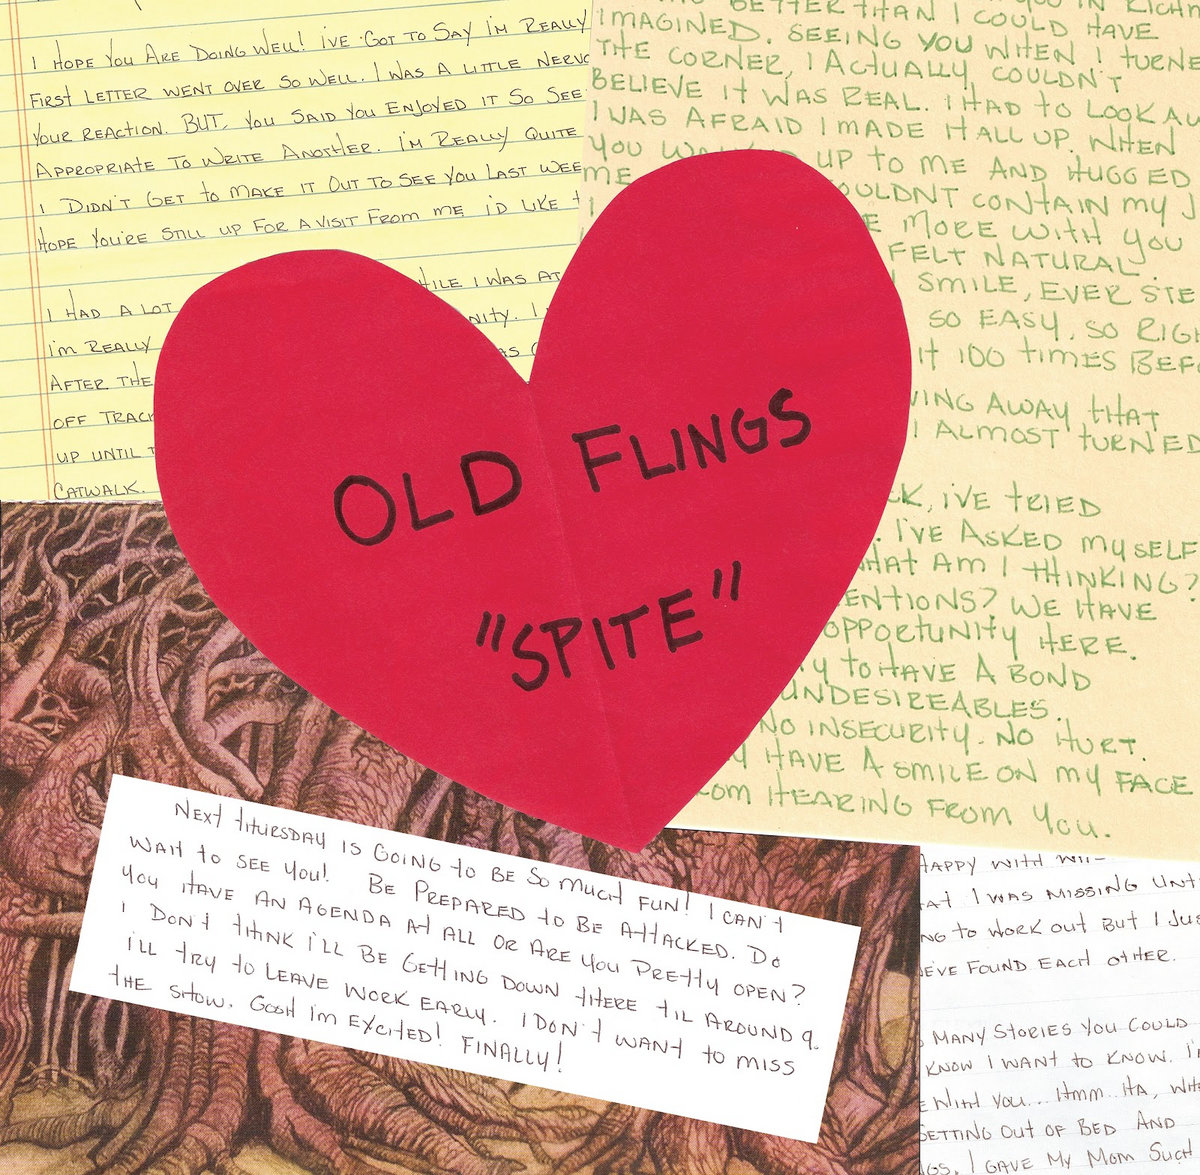 I HOPE YOU ARE DOING WELL! I'VE GOT TO SAY I'M REALLY
FIRST LETTER WENT OVER SO WELL. I WAS A LITTLE
YOUR REACTION. BUT, YOU SAID YOU ENJOYED IT SO SEE
APPROPRIATE TO WRITE ANOTHER. I'M REALLY QUITE
I DIDN'T GET TO MAKE IT OUT TO SEE YOU LAST
HOPE YOU'RE STILL UP FOR A VISIT FROM ME I'D LIKE
WHILE I WAS AT
I HAD A LOT
I'M REALLY
AFTER THE
OFF TRACK
UP UNTIL
CATWALK.
BETTER THAN I COULD HAVE
IMAGINED. SEEING YOU WHEN I TURNE
THE CORNER, I ACTUALLY COULDN'T
BELIEVE IT WAS REAL. I HAD TO LOOK
I WAS AFRAID I MADE IT ALL UP. WHEN
YOU UP TO ME AND HUGGED
ME OULDNT CONTAIN MY
I E MORE WITH YOU
FELT NATURAL.
SMILE, EVER
SO EASY, SO
IT 100 TIMES
VING AWAY THAT
I ALMOST TURNED
CK, I'VE TRIED
. I'VE ASKED MYSELF
HAT AM I THINKING?
ENTIONS? WE HAVE
OPPORTUNITY HERE.
Y TO HAVE A BOND
UNDESIREABLES.
NO INSECURITY. NO HURT.
Y HAVE A SMILE ON MY FACE
OM HEARING FROM YOU.
OLD FLINGS
"SPITE"
NEXT THURSDAY IS GOING TO BE SO MUCH FUN! I CAN'T
WAIT TO SEE YOU! BE PREPARED TO BE ATTACKED. DO
YOU HAVE AN AGENDA AT ALL OR ARE YOU PRETTY OPEN?
I DON'T THINK I'LL BE GETTING DOWN THERE TIL AROUND 9.
I'LL TRY TO LEAVE WORK EARLY. I DON'T WANT TO MISS
THE SHOW. GOSH I'M EXCITED! FINALLY!
HAPPY WITH
AT I WAS MISSING
NG TO WORK OUT BUT I
EVE FOUND EACH OTHER.
MANY STORIES YOU COULD
KNOW I WANT TO KNOW.
WITH YOU... HMM HA,
GETTING OUT OF BED AND
GS. I GAVE MY MOM SUCH